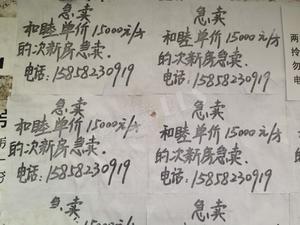 急卖
和睦单价15000元/方
的次新房急卖.
电话:15858230919
急卖
和睦单价15000元/方
的次新房急卖.
电话:15858230919
急卖
和睦单价15000元/方
的次新房急卖.
电话:15858230919
急卖
和睦单价15000元/方
的次新房急卖.
电话:15858230919
急卖
急卖
15000元/方
两